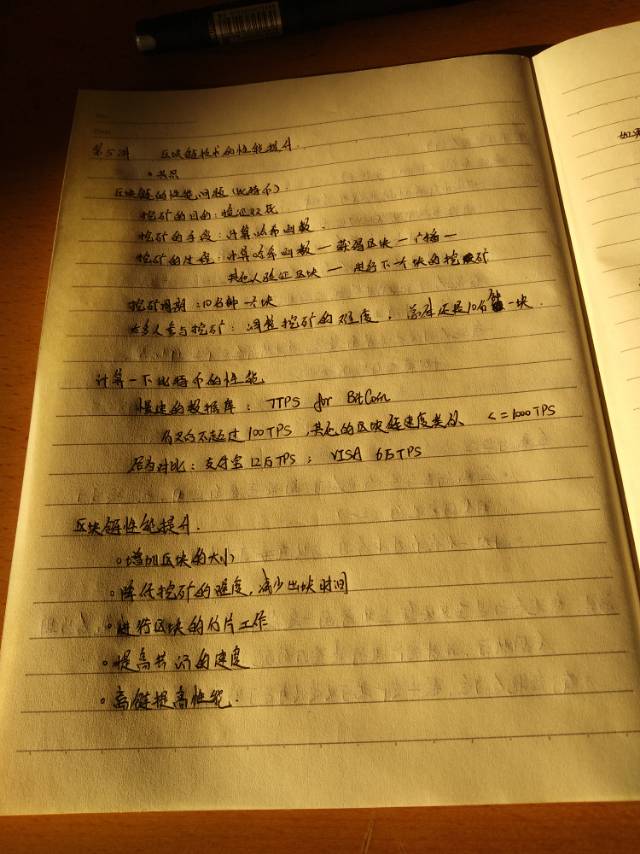 第5讲 区块链技术的性能提升.
。共识
区块链的性能问题(比特币).
挖矿的目的:验证交易
挖矿的手段:计算哈希函数.
挖矿的过程:计算哈希函数—获得区块—广播—
其他人验证区块—进行下一个块的挖矿
挖矿周期:10分钟一块
越多人参与挖矿:调整挖矿的难度,总体还是10分钟一块.
计算一下比特币的性能
慢速的数据库:7TPS for BitCoin
不超过100TPS,其他的区块链速度类似 <=1000TPS
对比:支付宝12万TPS;VISA 6万TPS
区块链性能提升.
。增加区块的大小
。降低挖矿的难度,减少出块时间
。进行区块的分片工作
。提高共识的速度
。离链提高性能.
如果